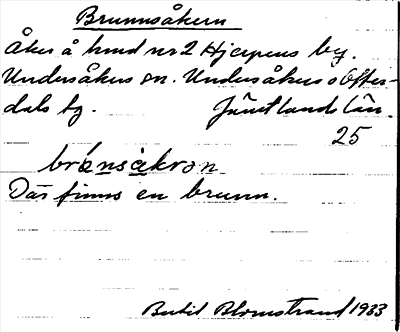 Brunnsåkern
Åker å hmd nr 2 Hjerpens by.
Undersåkers sn. Undersåkers o Offer-
dals tg. Jämtlands län.
25
bränsåkrən
Där finns en brunn.
Bertil Blomstrand 1933